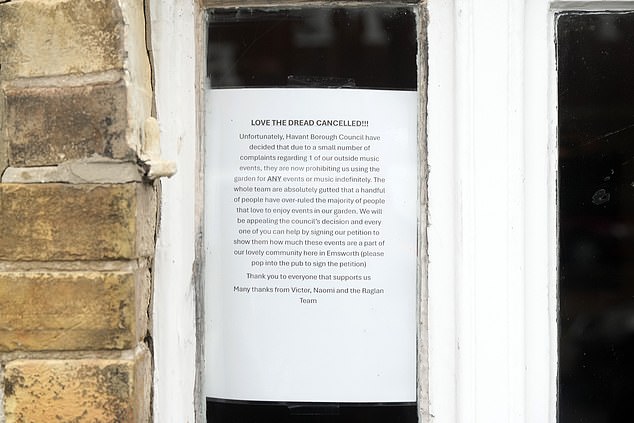 LOVE THE DREAD CANCELLED!!!
Unfortunately, Havant Borough Council have
decided that due to a small number of
complaints regarding 1 of our outside music
events, they are now prohibiting us using the
garden for ANY events or music indefinitely. The
whole team are absolutely gutted that a handful
of people have over-ruled the majority of people
that love to enjoy events in our garden. We will
be appealing the council's decision and every
one of you can help by signing our petition to
show them how much these events are a part of
our lovely community here in Emsworth (please
pop into the pub to sign the petition)
Thank you to everyone that supports us
Many thanks from Victor, Naomi and the Raglan
Team